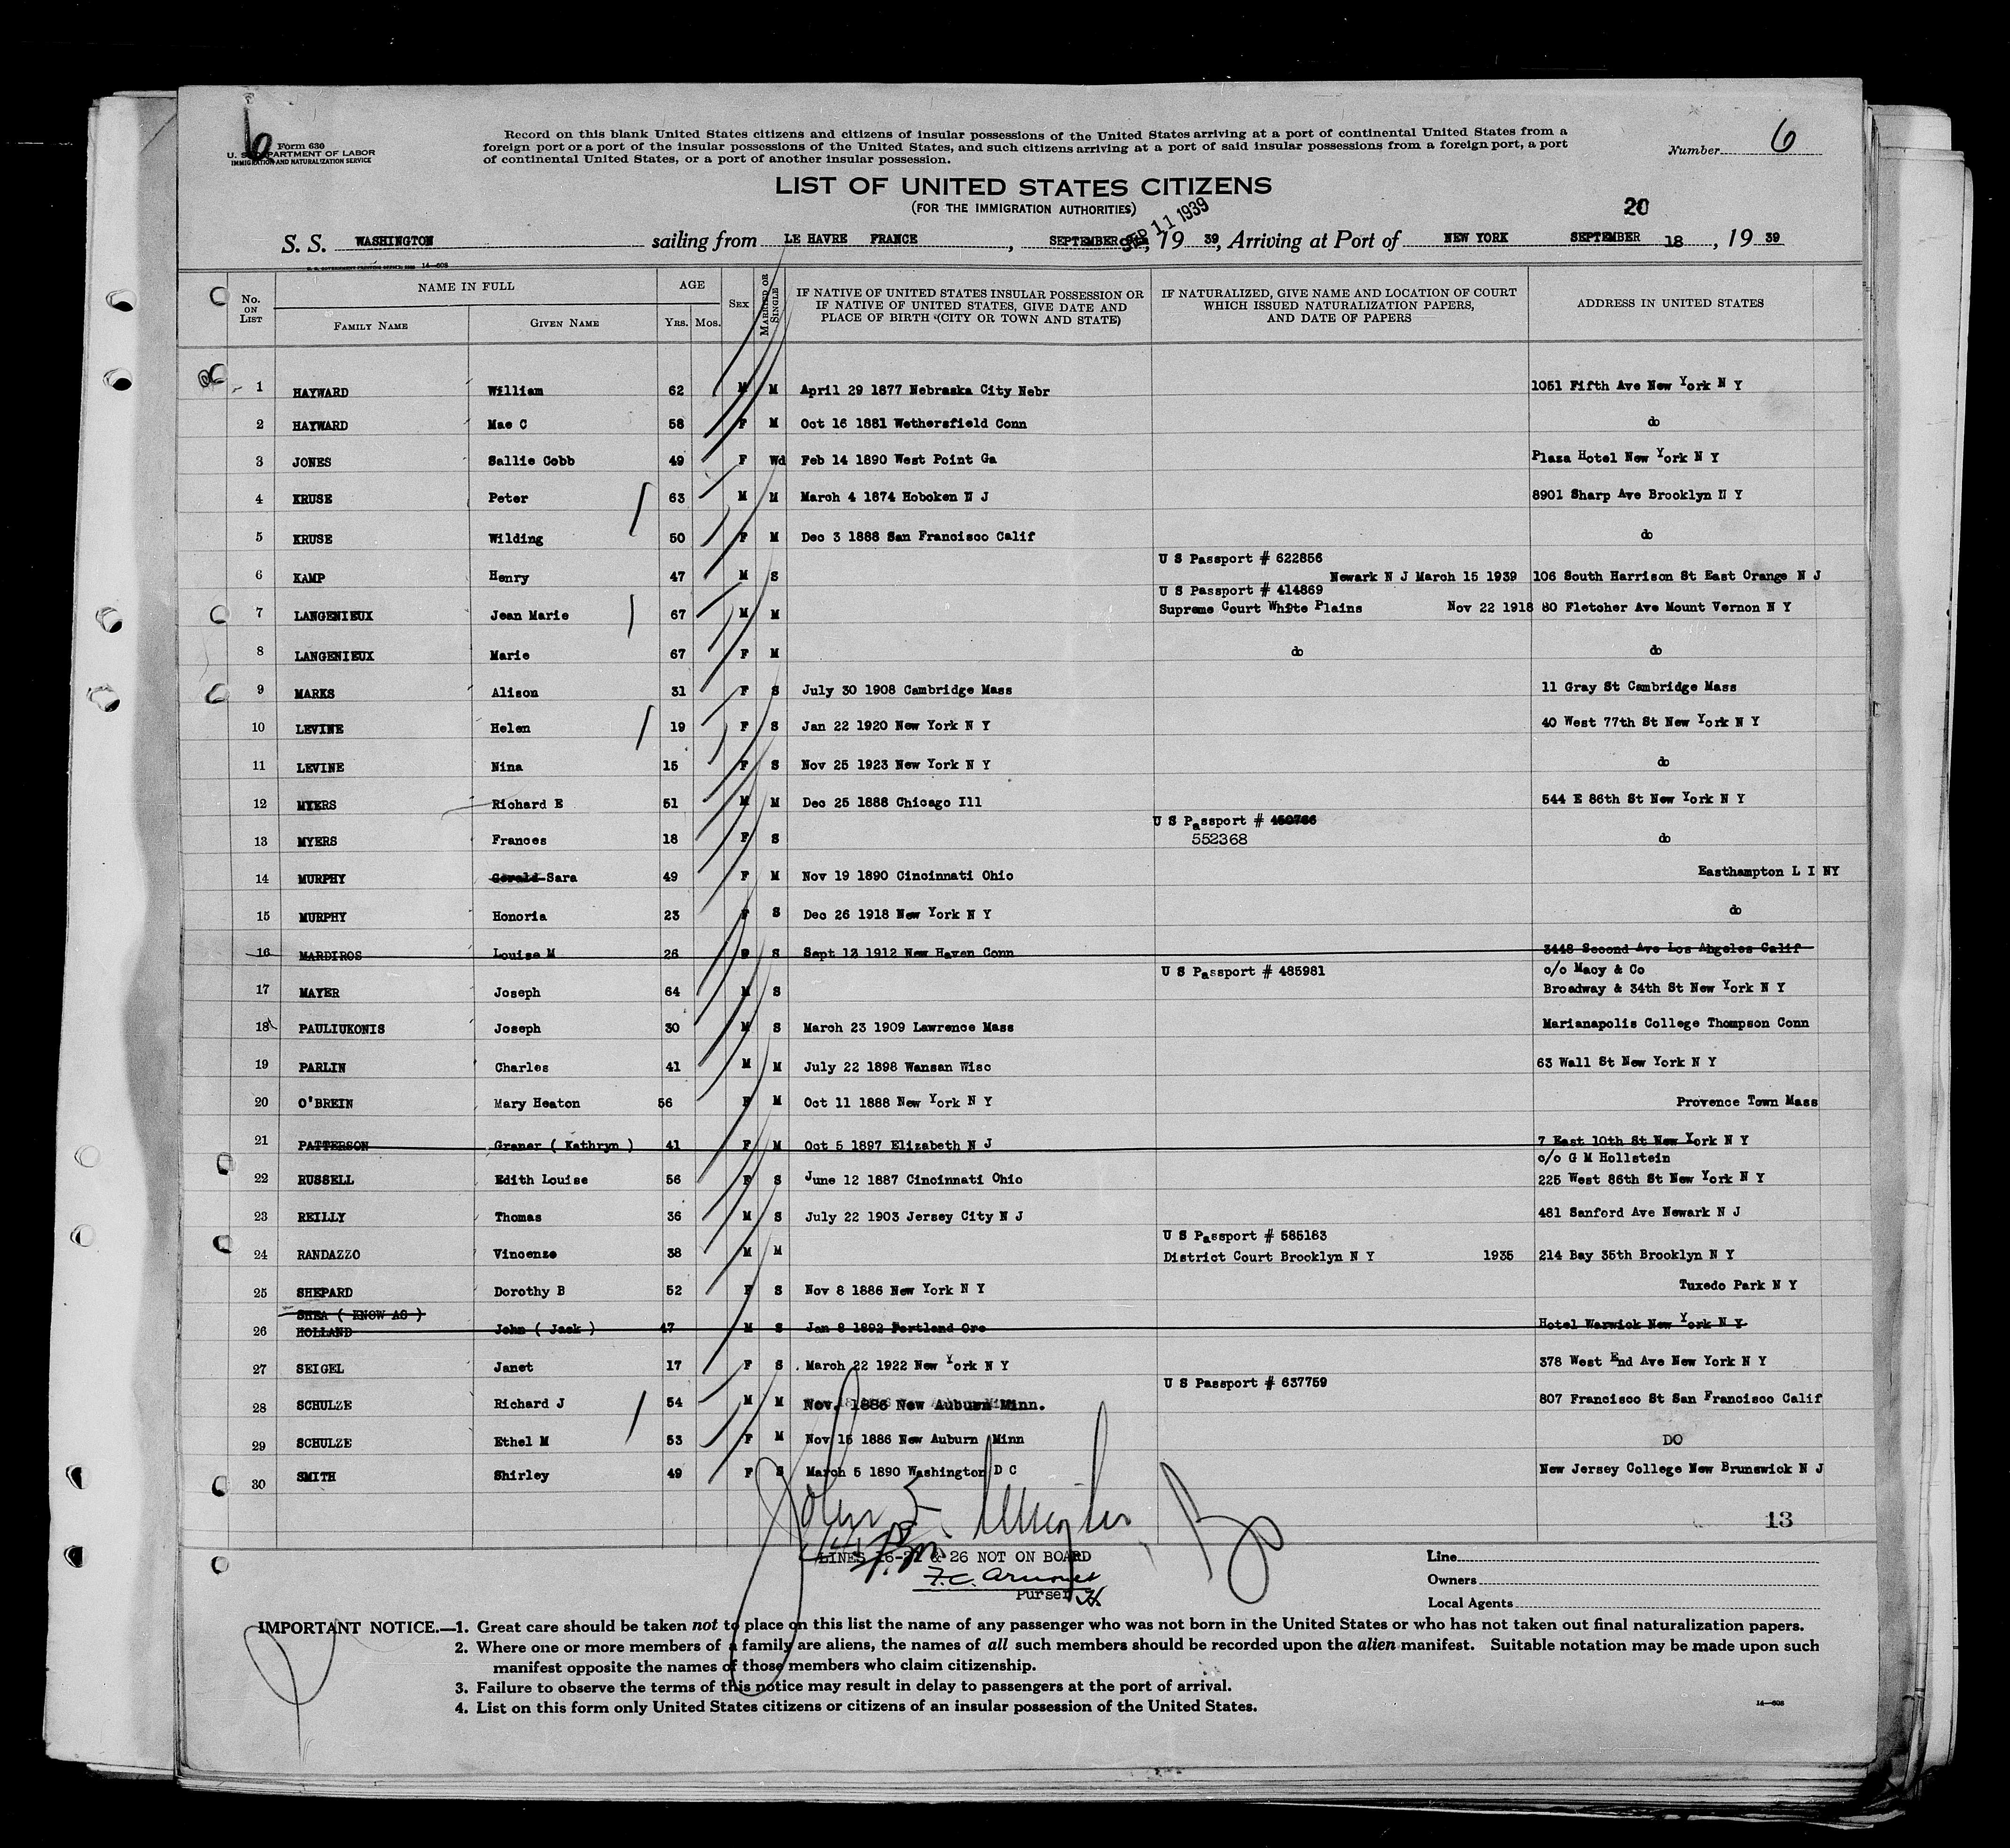 6
Form 630
U. S. DEPARTMENT OF LABOR
IMMIGRATION AND NATURALIZATION SERVICE
Record on this blank United States citizens and citizens of insular possessions of the United States arriving at a port of continental United States from a
foreign port or a port of the insular possessions of the United States, and such citizens arriving at a port of said insular possessions from a foreign port, a port
of continental United States, or a port of another insular possession.
Number 6
LIST OF UNITED STATES CITIZENS
(FOR THE IMMIGRATION AUTHORITIES)
SEP 11 1939
20
S. S. WASHINGTON sailing from LE HAVRE FRANCE, SEPTEMBER, 1939, Arriving at Port of NEW YORK SEPTEMBER 18, 1939
14—608
No. ON LIST NAME IN FULL AGE SEX MARRIED OR SINGLE IF NATIVE OF UNITED STATES INSULAR POSSESSION OR IF NATIVE OF UNITED STATES, GIVE DATE AND PLACE OF BIRTH (CITY OR TOWN AND STATE) IF NATURALIZED, GIVE NAME AND LOCATION OF COURT WHICH ISSUED NATURALIZATION PAPERS, AND DATE OF PAPERS ADDRESS IN UNITED STATES
FAMILY NAME GIVEN NAME YRS. MOS.
1 HAYWARD William 62 M M April 29 1877 Nebraska City Nebr 1051 Fifth Ave New York N Y
2 HAYWARD Mae C 58 F M Oct 16 1881 Wethersfield Conn do
3 JONES Sallie Cobb 49 F Wd Feb 14 1890 West Point Ga Plaza Hotel New York N Y
4 KRUSE Peter 63 M M March 4 1874 Hoboken N J 8901 Sharp Ave Brooklyn N Y
5 KRUSE Wilding 50 F M Dec 3 1888 San Francisco Calif do
U S Passport # 622856
6 KAMP Henry 47 M S Newark N J March 15 1939 106 South Harrison St East Orange N J
U S Passport # 414869
7 LANGENIEUX Jean Marie 67 M M Supreme Court White Plains Nov 22 1918 80 Fletcher Ave Mount Vernon N Y
8 LANGENIEUX Marie 67 F M do do
9 MARKS Alison 31 F S July 30 1908 Cambridge Mass 11 Gray St Cambridge Mass
10 LEVINE Helen 19 F S Jan 22 1920 New York N Y 40 West 77th St New York N Y
11 LEVINE Nina 15 F S Nov 25 1923 New York N Y do
12 MYERS Richard E 51 M M Dec 25 1888 Chicago Ill 544 E 86th St New York N Y
U S Passport # 450766
13 MYERS Frances 18 F S 552368 do
14 MURPHY Gerald Sara 49 F M Nov 19 1890 Cincinnati Ohio Easthampton L I NY
15 MURPHY Honoria 23 F S Dec 26 1918 New York N Y do
16 MARDIROS Louise M 26 S Sept 12 1912 New Haven Conn 3448 Second Ave Los Angeles Calif
U S Passport # 485981 c/o Macy & Co
17 MAYER Joseph 64 M S Broadway & 34th St New York N Y
18 PAULIUKONIS Joseph 30 M S March 23 1909 Lawrence Mass Marianapolis College Thompson Conn
19 PARLIN Charles 41 M M July 22 1898 Wansan Wisc 63 Wall St New York N Y
20 O'BREIN Mary Heaton 56 F M Oct 11 1888 New York N Y Provence Town Mass
21 PATTERSON Graner ( Kathryn ) 41 F M Oct 5 1897 Elizabeth N J 7 East 10th St New York N Y
c/o G M Hollstein
22 RUSSELL Edith Louise 56 F S June 12 1887 Cincinnati Ohio 225 West 86th St New York N Y
23 REILLY Thomas 36 M S July 22 1903 Jersey City N J 481 Sanford Ave Newark N J
U S Passport # 585183
24 RANDAZZO Vincenzo 38 M M District Court Brooklyn N Y 1935 214 Bay 35th Brooklyn N Y
25 SHEPARD Dorothy B 52 F S Nov 8 1886 New York N Y Tuxedo Park N Y
SHEA ( KNOW AS )
26 HOLLAND John ( Jack ) 47 M S Jan 8 1892 Portland Ore Hotel Warwick New York N Y
27 SEIGEL Janet 17 F S March 22 1922 New York N Y 378 West End Ave New York N Y
U S Passport # 637759
28 SCHULZE Richard J 54 M M Nov. 1886 New Auburn Minn. 807 Francisco St San Francisco Calif
29 SCHULZE Ethel M 53 F M Nov 15 1886 New Auburn Minn DO
30 SMITH Shirley 49 F S March 5 1890 Washington D C New Jersey College New Brunswick N J
13
LINES 16-21 & 26 NOT ON BOARD
Purser
Line
Owners
Local Agents
IMPORTANT NOTICE.—1. Great care should be taken not to place on this list the name of any passenger who was not born in the United States or who has not taken out final naturalization papers.
2. Where one or more members of a family are aliens, the names of all such members should be recorded upon the alien manifest. Suitable notation may be made upon such
manifest opposite the names of those members who claim citizenship.
3. Failure to observe the terms of this notice may result in delay to passengers at the port of arrival.
4. List on this form only United States citizens or citizens of an insular possession of the United States.
14—608